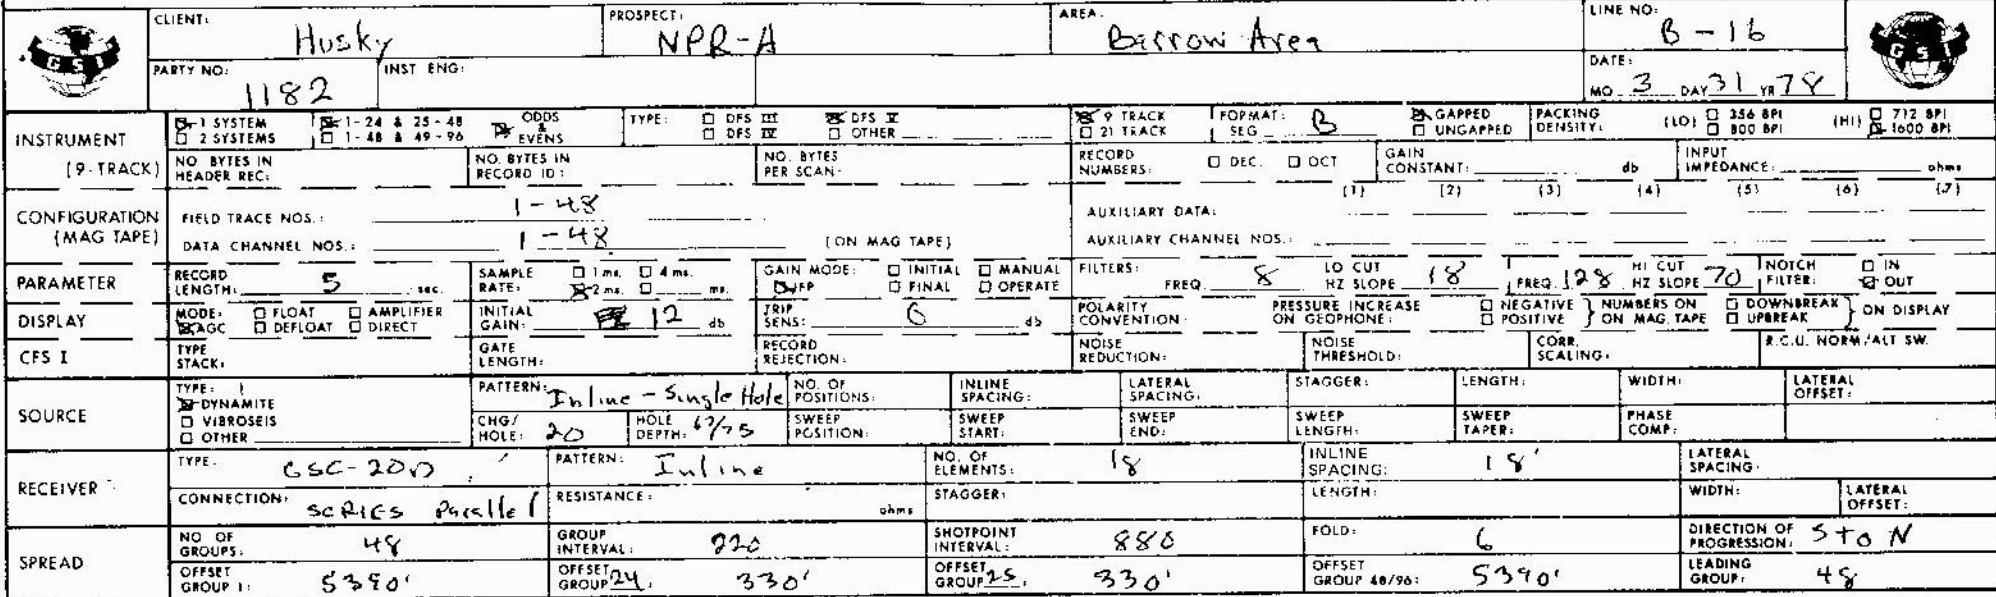 CLIENT: Husky PROSPECT: NPR-A AREA: Barrow Area LINE NO: B-16
GSI GSI
PARTY NO: 1182 INST ENG: DATE: MO 3 DAY 31 YR 78
INSTRUMENT (9-TRACK) 1 SYSTEM 1-24 & 25-48 ODDS & EVENS TYPE: DFS III DFS V 9 TRACK FORMAT: SEG B GAPPED PACKING DENSITY: (LO) 356 BPI (HI) 712 BPI
2 SYSTEMS 1-48 & 49-96 DFS IV OTHER 21 TRACK UNGAPPED 800 BPI 1600 BPI
NO BYTES IN HEADER REC: NO. BYTES IN RECORD ID: NO. BYTES PER SCAN: RECORD NUMBERS: DEC. OCT GAIN CONSTANT: db INPUT IMPEDANCE: ohms
CONFIGURATION (MAG TAPE) (1) (2) (3) (4) (5) (6) (7)
FIELD TRACE NOS.: 1-48 AUXILIARY DATA:
DATA CHANNEL NOS.: 1-48 (ON MAG TAPE) AUXILIARY CHANNEL NOS.:
PARAMETER RECORD LENGTH: 5 sec. SAMPLE RATE: 1 ms. 4 ms. 2 ms. ms. GAIN MODE: INITIAL MANUAL IFP FINAL OPERATE FILTERS: FREQ 8 LO CUT HZ SLOPE 18 FREQ. 128 HI CUT HZ SLOPE 70 NOTCH FILTER: IN OUT
DISPLAY MODE: FLOAT AMPLIFIER AGC DEFLOAT DIRECT INITIAL GAIN: 12 db TRIP SENS: 6 db POLARITY CONVENTION: PRESSURE INCREASE ON GEOPHONE: NEGATIVE POSITIVE } NUMBERS ON ON MAG. TAPE DOWNBREAK UPBREAK } ON DISPLAY
CFS I TYPE STACK: GATE LENGTH: RECORD REJECTION: NOISE REDUCTION: NOISE THRESHOLD: CORR. SCALING: R.C.U. NORM/ALT SW.
SOURCE TYPE: DYNAMITE VIBROSEIS OTHER PATTERN: Inline - Single Hole NO. OF POSITIONS: INLINE SPACING: LATERAL SPACING: STAGGER: LENGTH: WIDTH: LATERAL OFFSET:
CHG/HOLE: 20 HOLE DEPTH: 67/75 SWEEP POSITION: SWEEP START: SWEEP END: SWEEP LENGTH: SWEEP TAPER: PHASE COMP:
RECEIVER TYPE. GSC-20D PATTERN: Inline NO. OF ELEMENTS: 18 INLINE SPACING: 18' LATERAL SPACING:
CONNECTION: SCRIES Parallel RESISTANCE: ohms STAGGER: LENGTH: WIDTH: LATERAL OFFSET:
SPREAD NO OF GROUPS: 48 GROUP INTERVAL: 220 SHOTPOINT INTERVAL: 880 FOLD: 6 DIRECTION OF PROGRESSION: S to N
OFFSET GROUP 1: 5390' OFFSET GROUP 24: 330' OFFSET GROUP 25: 330' OFFSET GROUP 48/96: 5390' LEADING GROUP: 48